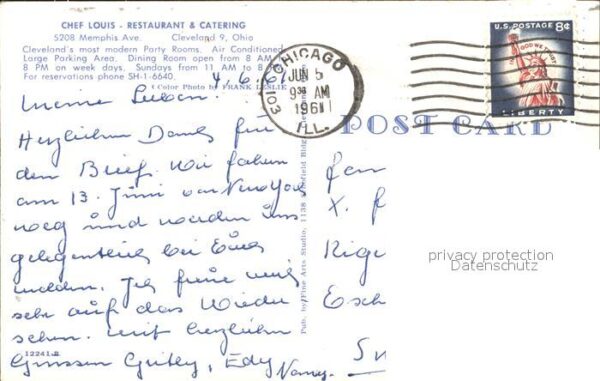 CHEF LOUIS - RESTAURANT & CATERING
5208 Memphis Ave. Cleveland 9, Ohio
Cleveland's most modern Party Rooms. Air Conditioned
Large Parking Area. Dining Room open from 8 AM
8 PM on week days. Sundays from 11 AM to 8
For reservations phone SH-1-6640.
Color Photo by FRANK LESLIE
CHICAGO
JUN 5
9 30 AM
1961
ILL.
103
U.S. POSTAGE 8¢
IN GOD WE TRUST
LIBERTY
POST CARD
4.6.61
Meine Lieben!
Herzlichen Dank für
den Brief. Wir fahren
am 13. Juni von New York
weg und werden uns
gelegentlich bei Euch
melden. Ich freue mich
sehr auf das Wieder
sehen. Mit herzlichen
Grüssen Guthy, Edy Nancy.
12241-B
Pub. by Fine Arts Studio, 1138
Fam
X. F
Rige
Esch
Sv
privacy protection
Datenschutz